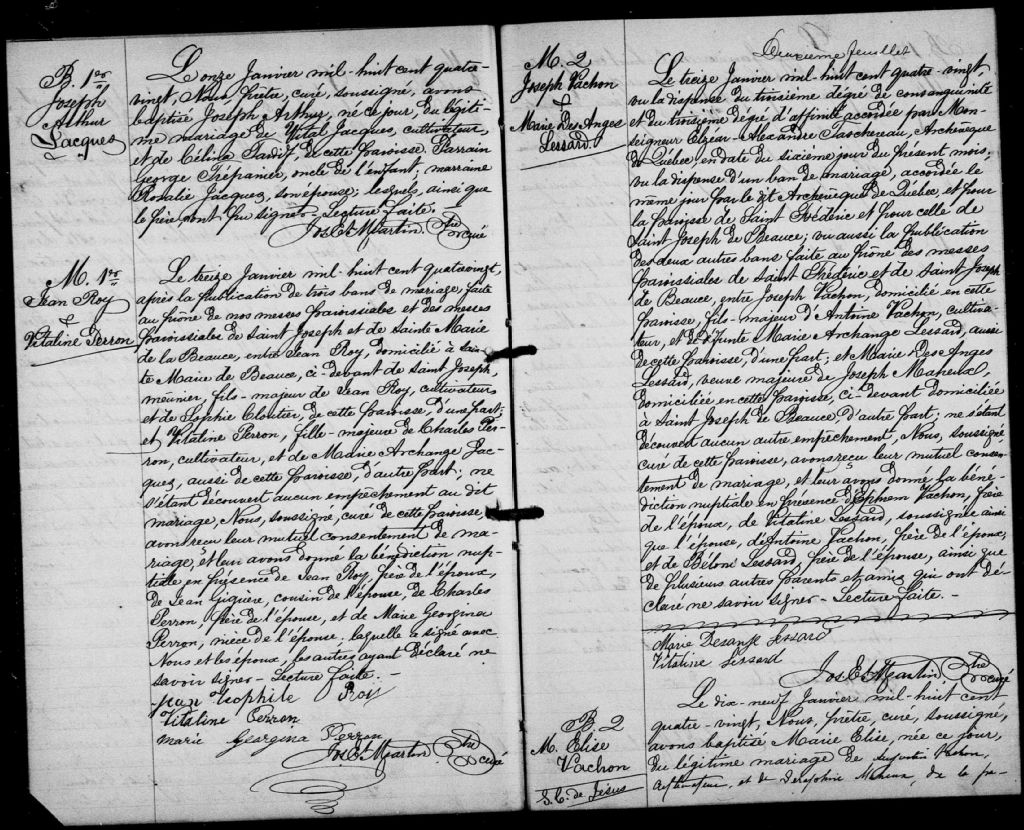 B. 1er
Joseph
Arthur
Jacques
Le onze Janvier mil-huit cent quatre-
vingt, Nous, prêtre, curé, soussigné, avons
baptisé Joseph Arthur, né ce jour, du légiti-
me mariage de Vital Jacques, cultivateur,
et de Célina Tardif, de cette paroisse. Parrain
George Trépanier, oncle de l'enfant; marraine
Rosalie Jacques, son épouse; lesquels, ainsi que
le père, n'ont pu signer - Lecture faite.
Jos. Et. Martin. Ptre
curé
M. 1er
Jean Roy
&
Vitaline Perron
Le treize Janvier mil-huit cent quatrevingt,
après la publication de trois bans de mariage, faite
au prône de nos messes paroissiales et des messes
paroissiales de Saint Joseph et de Sainte Marie
de la Beauce, entre Jean Roy, domicilié à Sain-
te Marie de Beauce, ci-devant de Saint Joseph,
meunier, fils-majeur de Jean Roy, cultivateur
et de Sophie Cloutier, de cette paroisse, d'une part;
et Vitaline Perron, fille-majeure de Charles Per-
ron, cultivateur, et de Marie Archange Jac-
ques, aussi de cette paroisse, d'autre part; ne
s'étant découvert aucun empêchement au dit
mariage, Nous, soussigné, curé de cette paroisse,
avons reçu leur mutuel consentement de ma-
riage, et leur avons donné la bénédiction nup-
tiale en présence de Jean Roy, père de l'époux,
de Jean Giguère, cousin de l'épouse, de Charles
Perron, père de l'épouse, et de Marie Georgina
Perron, nièce de l'épouse, laquelle a signé avec
Nous et les époux, les autres ayant déclaré ne
savoir signer - Lecture faite. -
Jean Théophile Roy
Vitaline Perron
Marie Georgina Perron
Jos. Et. Martin. Ptre
curé
Deuxième feuillet
M. 2
Joseph Vachon
&
Marie Des Anges
Lessard
Le treize Janvier mil-huit cent quatre-vingt,
vu la dispense du troisième dégré de consanguinité
et du troisième dégré d'affinité accordée par Mon-
seigneur Elzéar Alexandre Taschereau, Archevêque
de Québec, en date du sixième jour du présent mois,
vu la dispense d'un ban de mariage, accordée le
même jour par le dit Archevêque de Québec, et pour
la paroisse de Saint Frédéric et pour celle de
Saint Joseph de Beauce; vu aussi la publication
des deux autres bans faite au prône des messes
paroissiales de Saint Frédéric et de Saint Joseph
de Beauce, entre Joseph Vachon, domicilié en cette
paroisse, fils-majeur d'Antoine Vachon, cultiva-
teur, et de défunte Marie Archange Lessard, aussi
de cette paroisse, d'une part, et Marie Des Anges
Lessard, veuve majeure de Joseph Maheux,
domiciliée en cette paroisse, ci-devant domiciliée
à Saint Joseph de Beauce, d'autre part; ne s'étant
découvert aucun autre empêchement, Nous, soussigné
curé de cette paroisse, avons reçu leur mutuel consen-
tement de mariage, et leur avons donné la béné-
diction nuptiale en présence d'Ephrem Vachon, frère
de l'époux, de Vitaline Lessard, soussignée ainsi
que l'épouse, d'Antoine Vachon, père de l'époux,
et de Béloni Lessard, père de l'épouse, ainsi que
de plusieurs autres parents et amis qui ont dé-
claré ne savoir signer - Lecture faite. -
Marie Desange Lessard
Vitaline Lessard
Jos. Et. Martin Ptre
curé
B. 2
M. Elise
Vachon
S. C. de Jésus
Le dix-neuf Janvier mil-huit cent
quatre-vingt, Nous, prêtre, curé, soussigné,
avons baptisé Marie Elise, née ce jour,
du légitime mariage de Augustin Vachon,
cultivateur, et de Séraphine Maheux, de la pa-